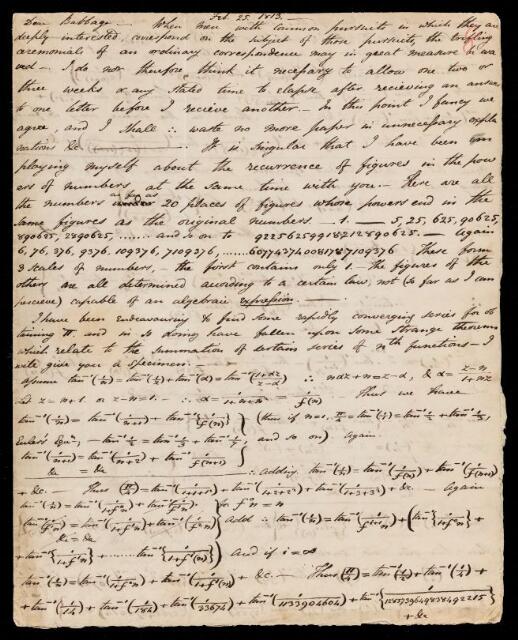 Feb. 25. 1813.
Dear Babbage — When men with common pursuits in which they are
deeply interested, correspond on the subject of those pursuits, the trifling
ceremonials of an ordinary correspondence may in great measure be wa
ved — I do not therefore think it necessary to allow one two or
three weeks or any stated time to elapse after recieving an answer
to one letter before I recieve another. — In this point I fancy we
agree, and I shall ∴ waste no more paper in unnecessary expla
nations &c. It is singular that I have been em
ploying myself about the recurrence of figures in the pow
ers of numbers at the same time with you. — Here are all
the numbers as far as 20 places of figures whose powers end in the
same figures as the original numbers — 1. — 5, 25, 625, 90625,
890625, 2890625, ........ and so on to 92256259918212890625. — Again
6, 76, 376, 9376, 109376, 7109376, ...... 60774374008178710 9376 These form
3 scales of numbers, — the first contains only 1. — the figures of the
others are all determined according to a certain law, not (so far as I can
percieve) capable of an algebraic expression. —
I have been endeavouring to find some rapidly converging series for ob
taining π. and in so doing have fallen upon some strange theorems
which relate to the summation of certain series of nth functions — I
will give you a specimen. —
assume tan⁻¹(1/n) = tan⁻¹(1/z) + tan⁻¹(α) = tan⁻¹(1+αz/z-α) ∴ nαz+n = z-α, & α = z-n/1+nz
Let z = n+1. or z-n = 1. — ∴ α = 1/1+n+n² = 1/f(n) Thus we have
tan⁻¹(1/n) = tan⁻¹(1/n+1) + tan⁻¹(1/f(n)) (thus if n=1, π/4 = tan⁻¹ 1/1 = tan⁻¹ 1/2 + tan⁻¹ 1/3,
Euler's Eqn, — tan⁻¹ 1/2 = tan⁻¹ 1/3 + tan⁻¹ 1/7, and so on) again
tan⁻¹(1/n+1) = tan⁻¹(1/n+2) + tan⁻¹(1/f(n+1))
&c = &c ∴ adding tan⁻¹(1/n) = tan⁻¹(1/f(n)) + tan⁻¹(1/f(n+1))
+ &c. — Thus (π/4) = tan⁻¹(1/1+1+1²) + tan⁻¹(1/1+2+2²) + tan⁻¹(1/1+3+3²) + &c — Again
&c = &c
and if i = ∞
+ &c. — Thus (π/4) = tan⁻¹(1/3) + tan⁻¹(1/4) +
+ tan⁻¹(1/14) + tan⁻¹(1/184) + tan⁻¹(1/33674) + tan⁻¹(1/1133904604) +
+ &c